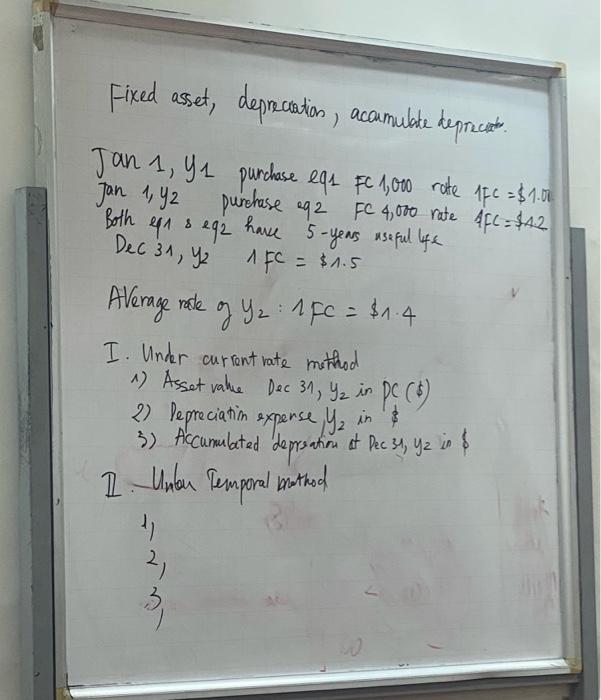 Fixed asset, depreciation, acamulate depreciation.
Jan 1, Y1 purchase eq1 FC 1,000 rate 1FC = $1.00
Jan 1, Y2 purchase eq2 FC 4,000 rate 1FC = $1.2
Both eq1 & eq2 have 5-years useful life
Dec 31, Y2 1 FC = $1.5
Average rate of Y2 : 1 FC = $1.4
I. Under current rate method
1) Asset value Dec 31, Y2 in PC ($)
2) Depreciatim expense, Y2 in $
3) Accumulated depreation at Dec 31, Y2 in $
II. Under Temporal method
1,
2,
3,